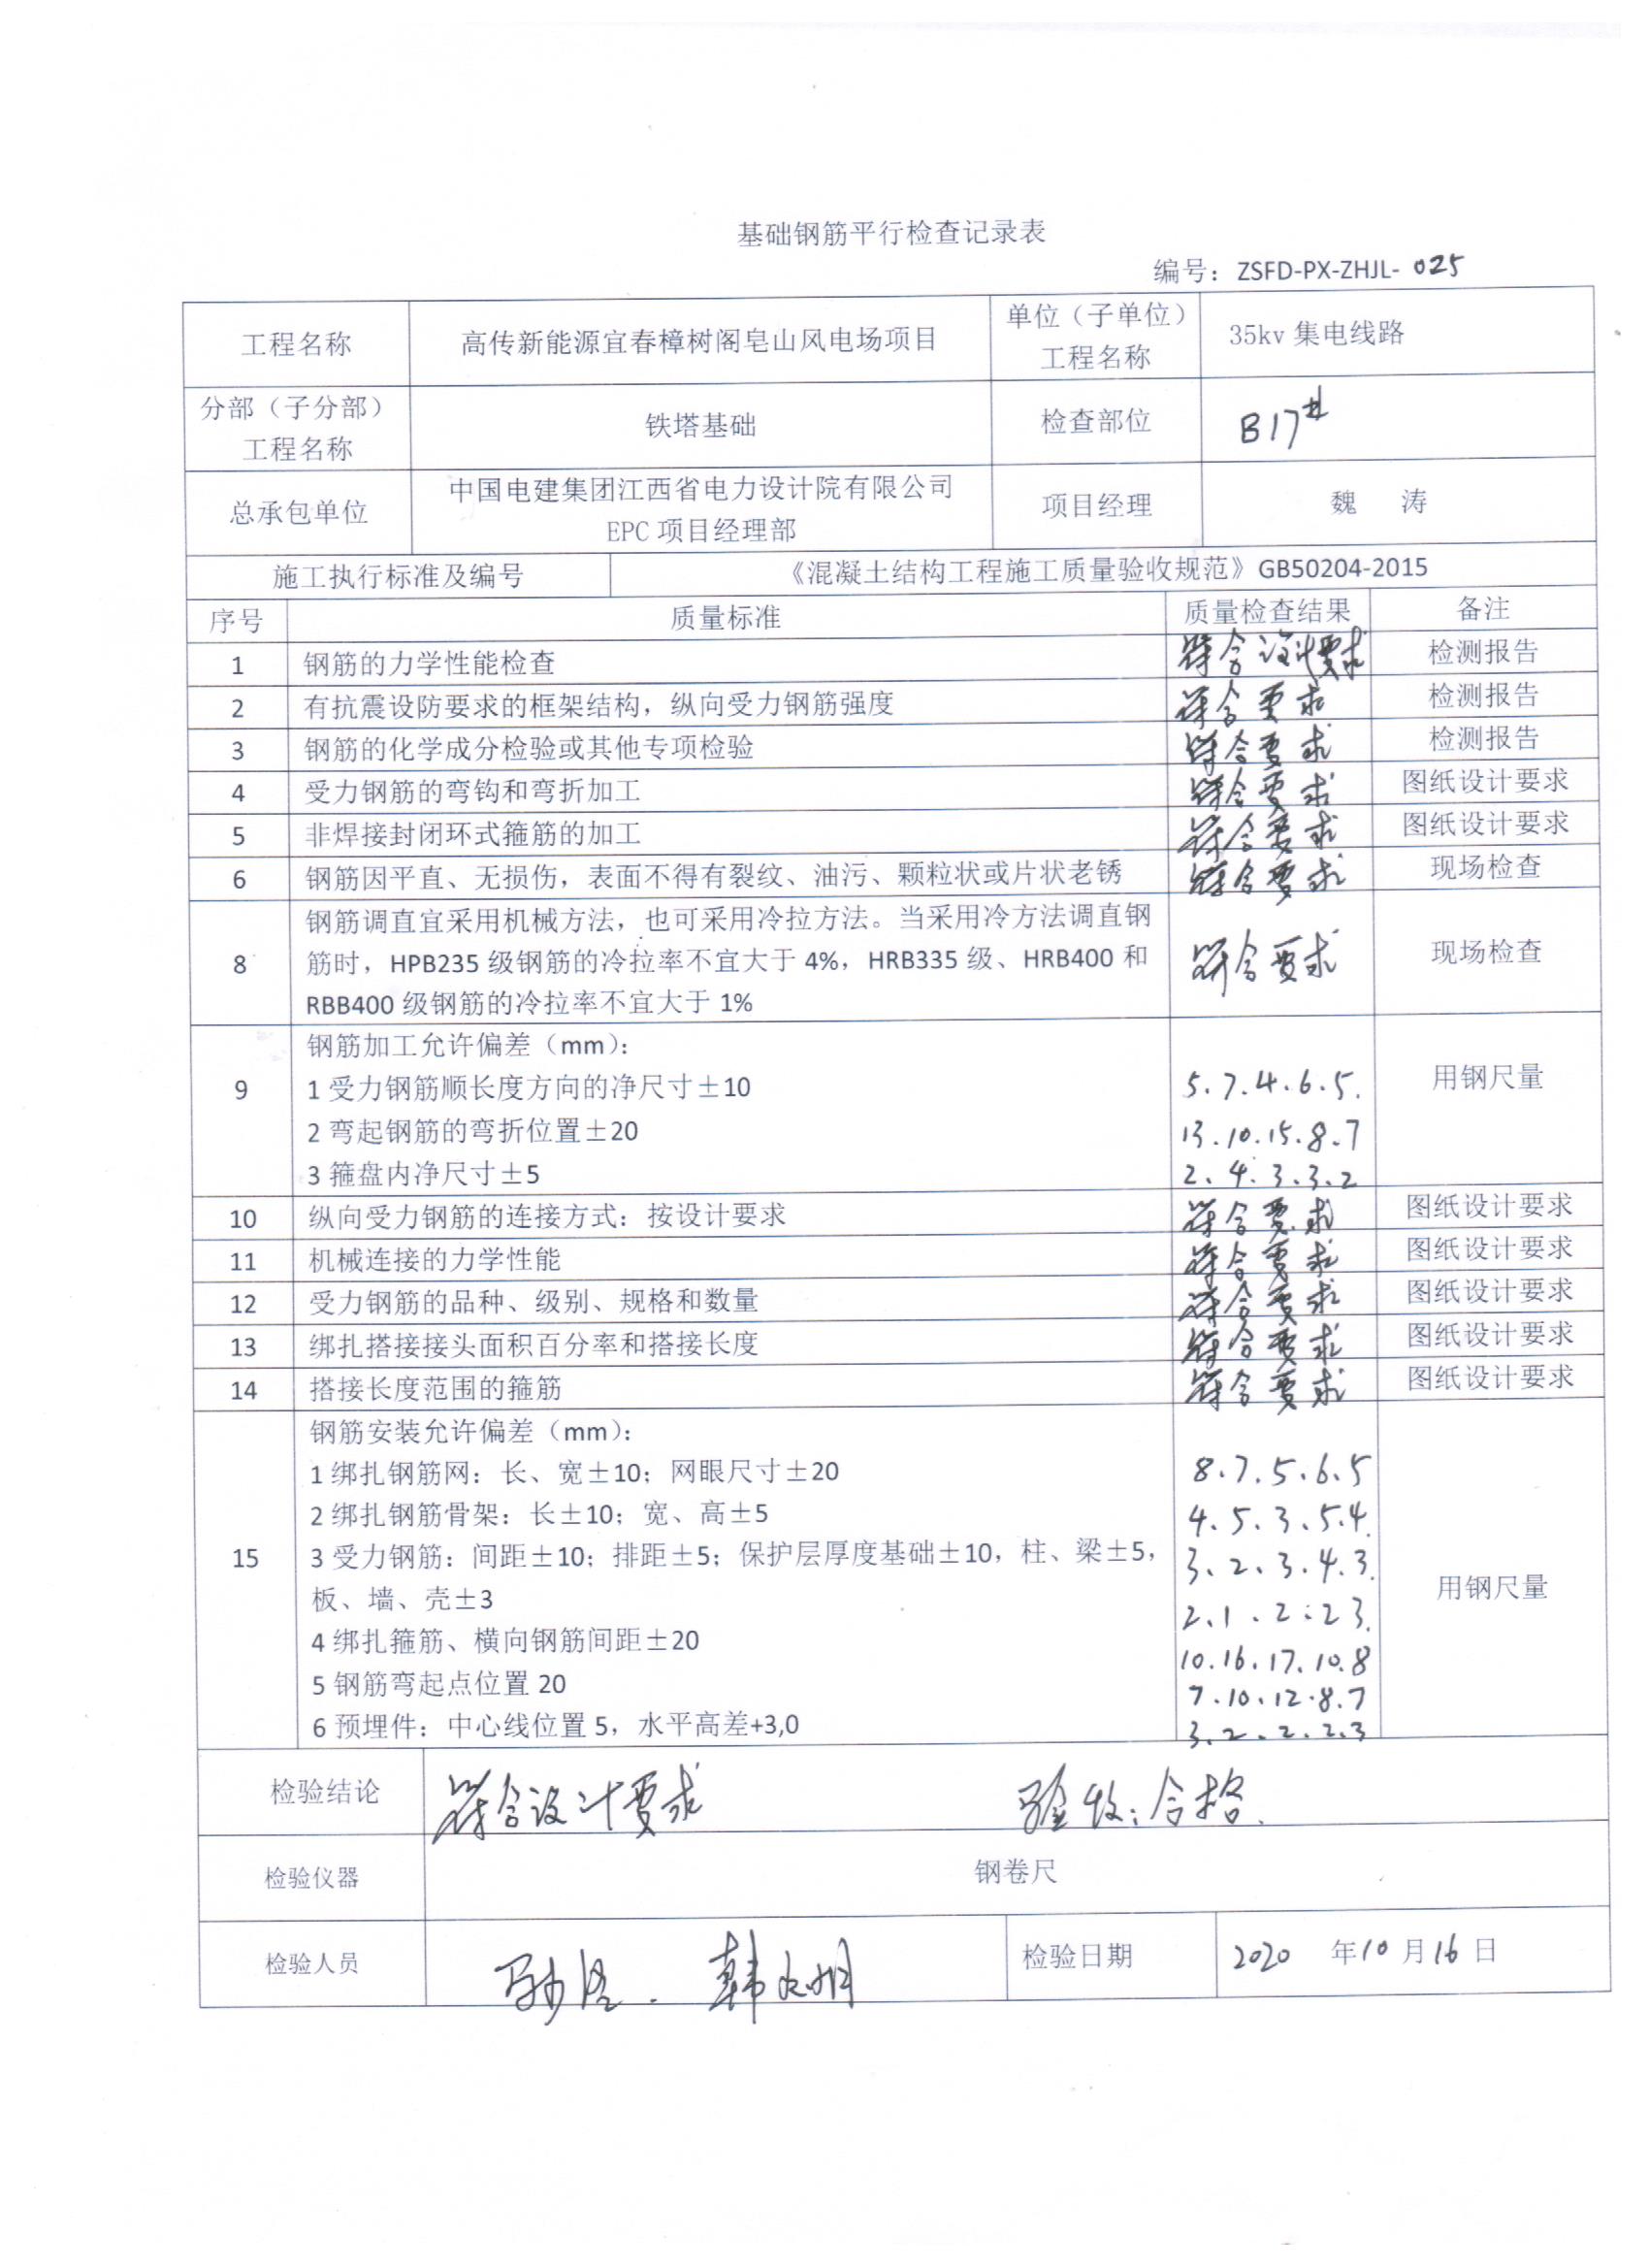 基础钢筋平行检查记录表
编号：ZSFD-PX-ZHJL- 025
工程名称 高传新能源宜春樟树阁皂山风电场项目 单位（子单位）工程名称 35kv 集电线路
分部（子分部）工程名称 铁塔基础 检查部位 B17#
总承包单位 中国电建集团江西省电力设计院有限公司 EPC 项目经理部 项目经理 魏 涛
施工执行标准及编号 《混凝土结构工程施工质量验收规范》GB50204-2015
序号 质量标准 质量检查结果 备注
1 钢筋的力学性能检查 符合设计要求 检测报告
2 有抗震设防要求的框架结构，纵向受力钢筋强度 符合要求 检测报告
3 钢筋的化学成分检验或其他专项检验 符合要求 检测报告
4 受力钢筋的弯钩和弯折加工 符合要求 图纸设计要求
5 非焊接封闭环式箍筋的加工 符合要求 图纸设计要求
6 钢筋因平直、无损伤，表面不得有裂纹、油污、颗粒状或片状老锈 符合要求 现场检查
钢筋调直宜采用机械方法，也可采用冷拉方法。当采用冷方法调直钢
8 筋时，HPB235 级钢筋的冷拉率不宜大于 4%，HRB335 级、HRB400 和 符合要求 现场检查
RBB400 级钢筋的冷拉率不宜大于 1%
钢筋加工允许偏差（mm）：
9 1 受力钢筋顺长度方向的净尺寸±10 5、7、4、6、5. 用钢尺量
2 弯起钢筋的弯折位置±20 13.10.15.8、7
3 箍盘内净尺寸±5 2、4、3、3、2
10 纵向受力钢筋的连接方式：按设计要求 符合要求 图纸设计要求
11 机械连接的力学性能 符合要求 图纸设计要求
12 受力钢筋的品种、级别、规格和数量 符合要求 图纸设计要求
13 绑扎搭接接头面积百分率和搭接长度 符合要求 图纸设计要求
14 搭接长度范围的箍筋 符合要求 图纸设计要求
钢筋安装允许偏差（mm）：
1 绑扎钢筋网：长、宽±10；网眼尺寸±20 8、7、5、6、5
2 绑扎钢筋骨架：长±10；宽、高±5 4、5、3、5、4.
15 3 受力钢筋：间距±10；排距±5；保护层厚度基础±10，柱、梁±5， 3、2、3、4、3. 用钢尺量
板、墙、壳±3 2、1、2、2 3.
4 绑扎箍筋、横向钢筋间距±20 10.16、17、10、8
5 钢筋弯起点位置 20 7、10、12、8、7
6 预埋件：中心线位置 5，水平高差+3,0 3、2、2、2、3
检验结论 符合设计要求 验收：合格.
检验仪器 钢卷尺
检验人员 检验日期 2020 年 10 月 16 日